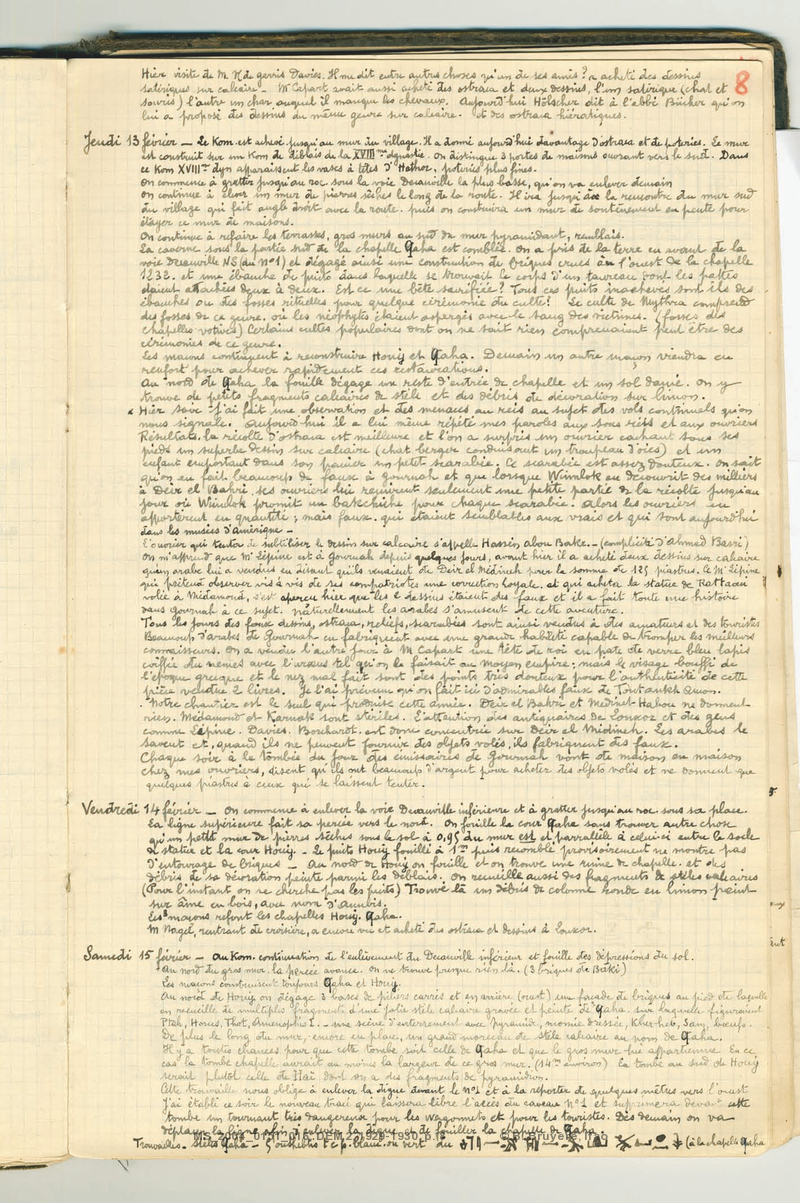 8
Hier visite de M. N de gerris Davies. Il me dit entre autres choses qu'un de ses amis? a acheté des dessins
satiriques sur calcaire – Mr Capart avait aussi acheté des ostraca et deux dessins, l'un satirique (chat et
souris) l'autre un char auquel il manque les chevaux. Aujourd'hui Hölscher dit à l'abbé Bücher qu'on
lui a proposé des dessins du même genre sur calcaire. et des ostraca hiératiques.
Jeudi 13 février – Le Kom est achevé jusqu'au mur du village. Il a donné aujourd'hui davantage d'ostraca et de poteries. Le mur
est construit sur un Kom de déblais de la XVIIIme dynastie. On distingue 3 portes de maisons ouvrant vers le sud. Dans
ce Kom XVIIIme dyn apparaissent les vases à têtes d'Hathor, poteries plus fines.
On commence à gratter jusqu'au roc sous la voie Decauville la plus basse, qu'on va enlever demain
on continue à élever un mur de pierres sèches le long de la route. Il ira jusqu'à la rencontre du mur sud
du village qui fait angle droit avec la route. puis on construira un mur de soutènement en pente pour
étayer ce mur de maisons.
On continue à refaire les terrasses, gros murs au sud du mur pyramidant, remblais.
La caverne sous la partie sud de la chapelle Qaha est comblée. On a pris de la terre en avant de la
voie Decauville NS (du n°1) et dégagé ainsi une construction de briques crues à l'ouest de la chapelle
1233. et une ébauche de puits dans laquelle se trouvait le corps d'un taureau dont les pattes
étaient attachées deux à deux. Est ce une bête sacrifiée? Tous ces puits inachevés sont ils des
ébauches ou des fosses rituelles pour quelque cérémonie du culte? Le culte de Mythra comprend
des fosses de ce genre. où les néophytes étaient aspergés avec le sang des victimes. (fosses des
chapelles votives) Certains cultes populaires dont on ne sait rien comprenaient peut être des
cérémonies de ce genre.
Les maçons continuent à reconstruire Houÿ et Qaha. Demain un autre maçon viendra en
renfort pour achever rapidement ces restaurations.
Au nord de Qaha la fouille dégage un reste d'entrée de chapelle et un sol dallé. On y
trouve de petits fragments calcaires de stèle et des débris de décoration sur limon.
Hier soir j'ai fait une observation et des menaces au reis au sujet des vols continuels qu'on
nous signale. Aujourd'hui il a lui même répété mes paroles aux sous réis et aux ouvriers
Résultats, la récolte d'ostraca est meilleure et l'on a surpris un ouvrier cachant sous ses
pieds un superbe dessin sur calcaire (chat berger conduisant un troupeau d'oies) et un
enfant emportant dans son panier un petit scarabée. Ce scarabée est assez douteux. on sait
qu'on en fait beaucoup de faux à gournah et que lorsque Winlok en découvrit des milliers
à Deir el Bahri, ses ouvriers lui remirent seulement une petite partie de la récolte jusqu'au
jour où Winlok promit un bakchiche pour chaque scarabée. Alors les ouvriers en
apportèrent en quantité, mais faux. qui étaient semblables aux vrais et qui sont aujourd'hui
dans les musées d'Amérique –
L'ouvrier qui tenta de subtiliser le dessin sur calcaire s'appelle Hassein abou Bakr. – (complicité d'Ahmed Basri)
On m'apprend que Mr Lépine est à Gournah depuis quelques jours, avant hier il a acheté deux dessins sur calcaire
qu'un arabe lui a vendus en disant qu'ils venaient de Deir el Médineh pour la somme de 125 piastres. Ce Mr Lépine
qui prétend observer vis à vis de ses compatriotes une correction loyale. et qui acheta la statue de Rattaoui
volée à Médamoud, s'est aperçu hier que les 2 dessins étaient des faux et il a fait toute une histoire
dans gournah à ce sujet. Naturellement les arabes s'amusent de cette aventure.
Tous les jours des faux dessins, ostraca, reliefs, scarabées sont ainsi vendus à des amateurs et des touristes
Beaucoup d'arabes de Gournah en fabriquent avec une grande habileté capable de tromper les meilleurs
connaisseurs. On a vendu l'autre jour à M Capart une tête de roi en pate de verre bleu lapis
coiffée du nemes avec l'uraeus tel qu'on le faisait au moyen empire; mais le visage bouffi de
l'époque grecque et le nez mal fait sont des points très douteux pour l'authenticité de cette
pièce vendue 2 livres. Je l'ai prévenu qu'on fait ici d'admirables faux de Toutankh Amon.
Notre chantier est le seul qui produise cette année. Deir el Bahri et Médinet-Habou ne donnent
rien. Médamoud et Karnak sont stériles. L'attention des antiquaires de Louxor et des gens
comme Lépine. Davies. Borchardt. est donc concentrée sur Deir el Médineh. Les arabes le
savent et, quand ils ne peuvent fournir des objets volés, ils fabriquent des faux.
Chaque soir à la tombée du jour des émissaires de Gournah vont de maison en maison
chez mes ouvriers, disent qu'ils ont beaucoup d'argent pour acheter des objets volés et ne donnent que
quelques piastres à ceux qui se laissent tenter.
Vendredi 14 février – On commence à enlever la voie Decauville inférieure et à gratter jusqu'au roc sous sa place.
La ligne supérieure fait sa percée vers le nord. On fouille la cour Qaha sans trouver autre chose
qu'un petit mur de pierres sèches sous le sol à 0,95 du mur est et parrallèle à celui-ci entre le socle
de statue et la cour Houÿ. – Le puits Houÿ fouillé à 1m puis recomblé provisoirement ne montre pas
d'entourage de briques – Au nord de Houÿ on fouille et on trouve une ruine de chapelle. et des
débris de sa décoration peinte parmi les déblais. On recueille aussi des fragments de stèles calcaires
(Pour l'instant on ne cherche pas les puits) Trouvé là un débris de colonne ronde en limon peint
sur âme en bois, avec nom d'Anubis.
Les 3 maçons refont les chapelles Houÿ. Qaha.
M Nagel, rentrant de croisière, a encore vu et acheté des ostraca et dessins à Louxor.
Samedi 15 février – Au Kom. continuation de l'enlèvement du Decauville inférieur et fouille des dépressions du sol.
Au nord du gros mur la percée avance. on ne trouve presque rien là. (3 briques de Baki)
Les maçons construisent toujours Qaha et Houÿ.
Au nord de Houÿ on dégage 3 bases de piliers carrés et en arrière (ouest) une façade de briques au pied de laquelle
on recueille de multiples fragments d'une jolie stèle calcaire gravée et peinte de Qaha. sur laquelle figuraient
Ptah, Horus, Thot, Amenophis I. – une scène d'enterrement avec pyramide, momie dressée, Kher-heb, Sam, bœufs.
De plus le long du mur, encore en place, un grand morceau de stèle calcaire au nom de Qaha.
Il y a toutes chances pour que cette tombe soit celle de Qaha et que le gros mur lui appartienne. En ce
cas la tombe chapelle aurait au moins la largeur de ce gros mur. (14m environ) La tombe au sud de Houÿ
serait plutôt celle de Haï dont on a des fragments de pyramidion.
Cette trouvaille nous oblige à enlever la digue devant le n°1 et à la reporter de quelques mètres vers l'ouest
J'ai établi ce soir le nouveau tracé qui laissera libre l'accès du caveau N°1 et supprimera devant cette
tombe un tournant très dangereux pour les wagonnets et pour les touristes. Dès demain on va
déplacer la ligne afin d'enlever la digue et de fouiller la chapelle de Qaha
Trouvailles. Stèle Qaha – (à la chapelle Qaha